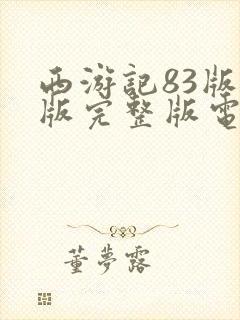 西游記83版
版完整版電
董夢露